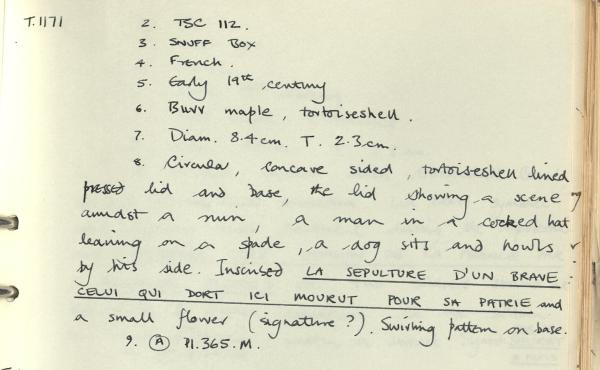 T.1171
2. TSC 112.
3. SNUFF BOX
4. French.
5. Early 19th century
6. Burr maple, tortoiseshell.
7. Diam. 8.4cm. T. 2.3cm.
8. Circular, concave sided, tortoiseshell lined
pressed lid and base, the lid showing a scene
amidst a ruin, a man in a cocked hat
leaning on a spade, a dog sits and howls
by his side. Inscribed LA SEPULTURE D'UN BRAVE
CELUI QUI DORT ICI MOURUT POUR SA PATRIE and
a small flower (signature?). Swirling pattern on base.
9. A P1.365.M.